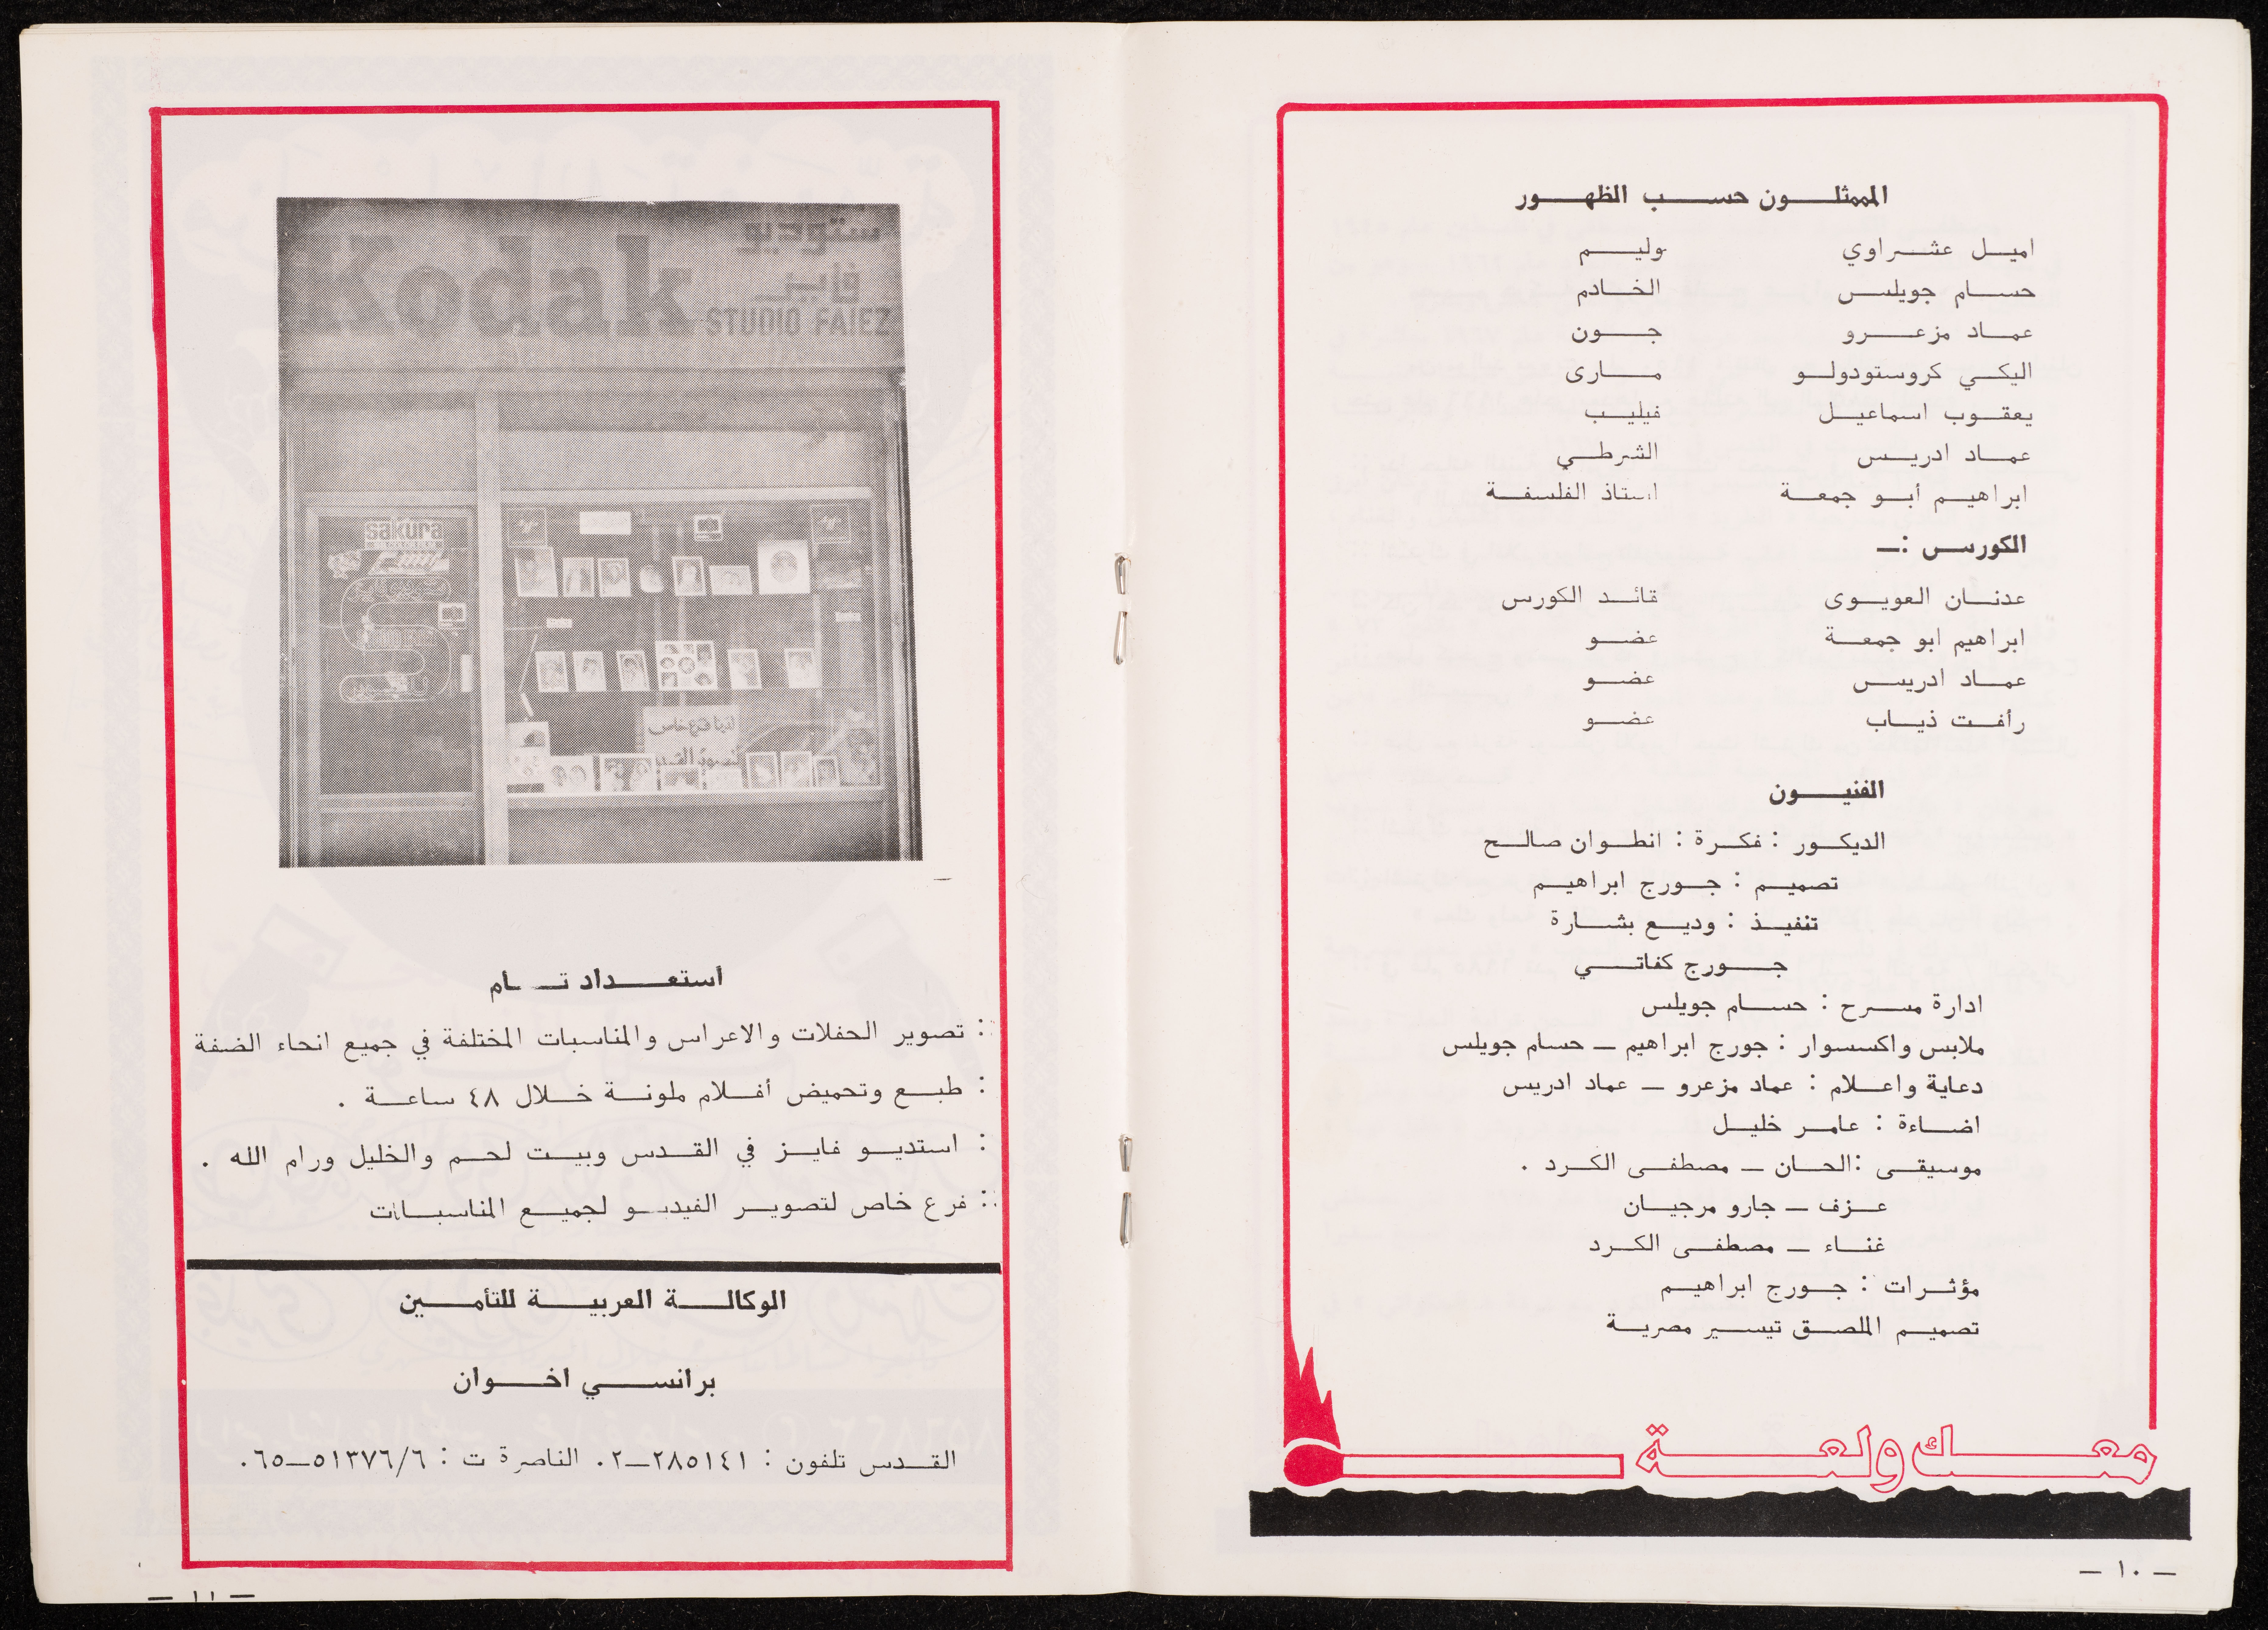 الممثلون حسب الظهور
اميل عشراوي وليم
حسام جويلس الخادم
عماد مزعرو جون
اليكي كروستودولو مارى
يعقوب اسماعيل فيليب
عماد ادريس الشرطي
ابراهيم أبو جمعة استاذ الفلسفة
الكورس :ـ
عدنان العويوى قائد الكورس
ابراهيم ابو جمعة عضو
عماد ادريس عضو
رأفت ذياب عضو
الفنيون
الديكور : فكرة : انطوان صالح
تصميم : جورج ابراهيم
تنفيذ : وديع بشارة
جورج كفاتي
ادارة مسرح : حسام جويلس
ملابس واكسسوار : جورج ابراهيم ـ حسام جويلس
دعاية واعلام : عماد مزعرو ـ عماد ادريس
اضاءة : عامر خليل
موسيقى :الحان ـ مصطفى الكرد .
عزف ـ جارو مرجيان
غناء ـ مصطفى الكرد
مؤثرات : جورج ابراهيم
تصميم الملصق تيسير مصرية
معك ولعة
ـ ١٠ ـ
ستوديو
فايز
Kodak
STUDIO FAIEZ
sakura
لدينا فرع خاص
أستعداد تام
: تصوير الحفلات والاعراس والمناسبات المختلفة في جميع انحاء الضفة
: طبع وتحميض أفلام ملونة خلال ٤٨ ساعة .
: استديو فايز في القدس وبيت لحم والخليل ورام الله .
: فرع خاص لتصوير الفيديو لجميع المناسبات
الوكالة العربية للتأمين
برانسي اخوان
القدس تلفون : ٢٨٥١٤١ـ٠٢ الناصرة ت : ٥١٣٧٦/٦ـ٠٦٥
ـ ١١ ـ